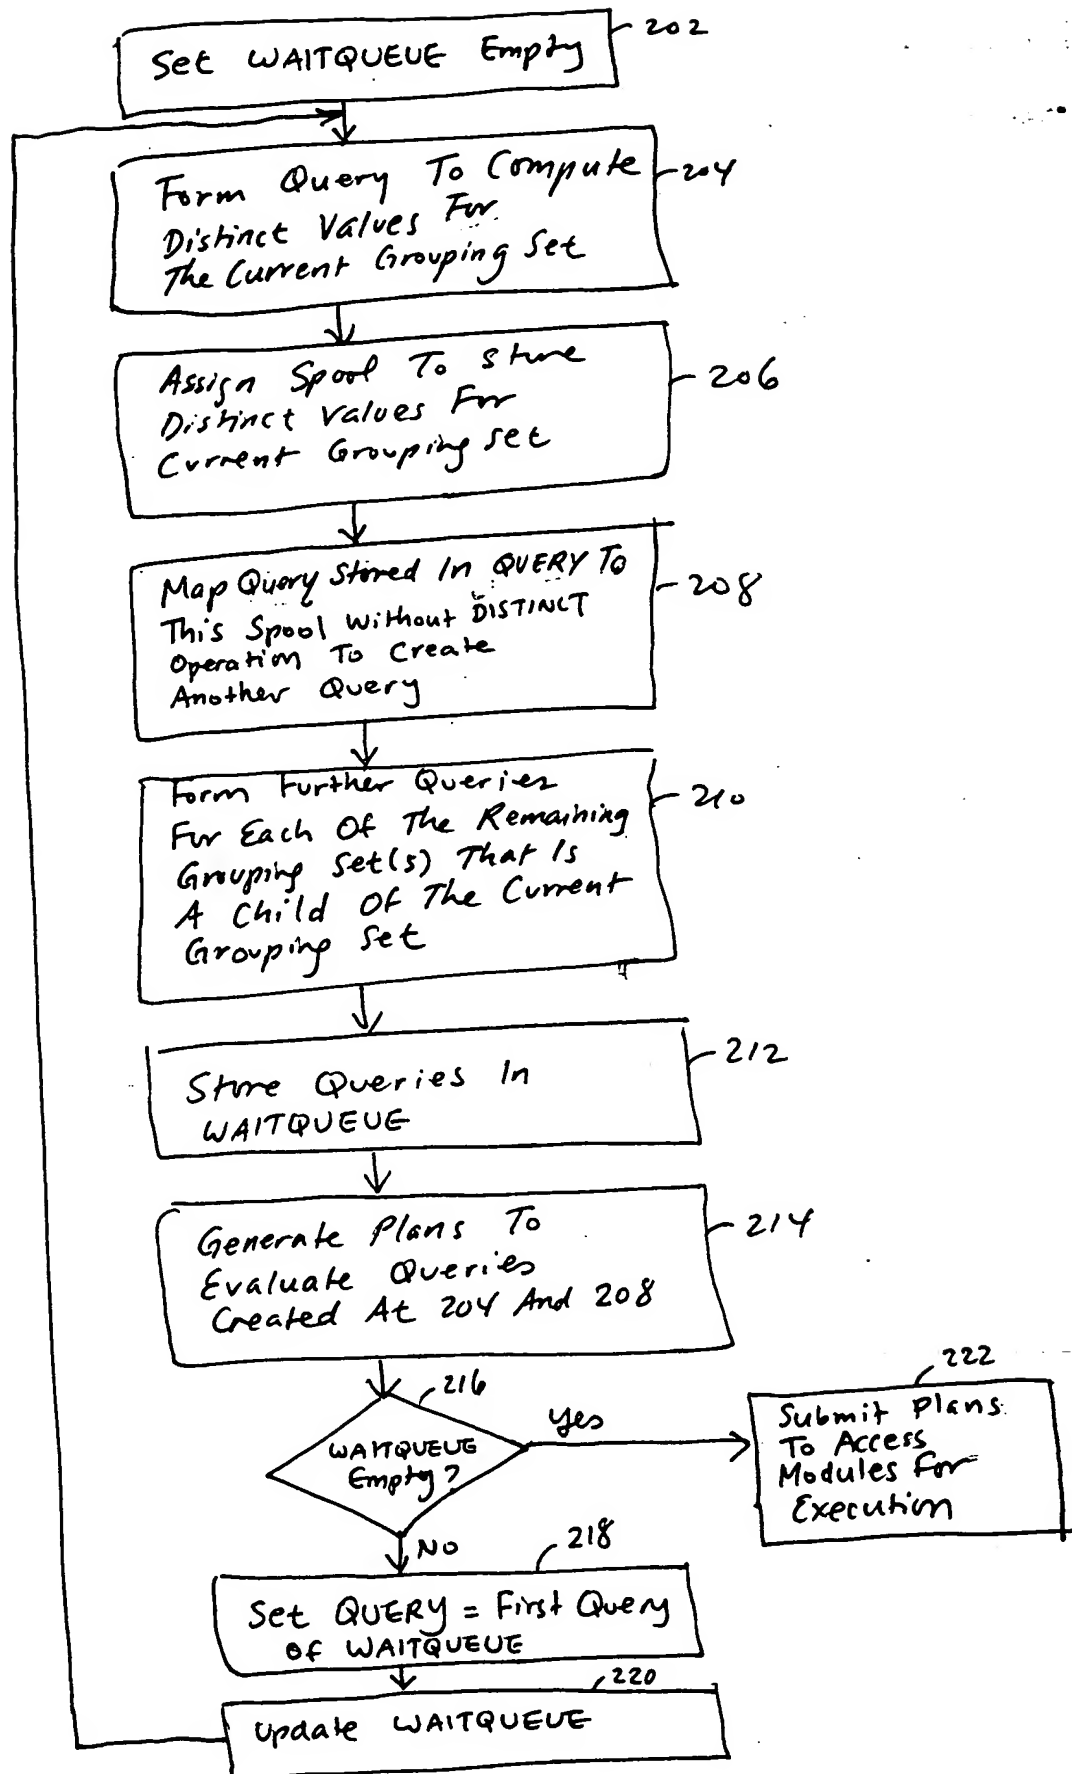 202
Set WAITQUEUE Empty
204
Form Query To Compute
Distinct Values For
The Current Grouping Set
206
Assign Spool To Store
Distinct Values For
Current Grouping Set
208
Map Query Stored In QUERY To
This Spool Without DISTINCT
Operation To Create
Another Query
210
Form Further Queries
For Each Of The Remaining
Grouping Set(s) That Is
A Child Of The Current
Grouping Set
212
Store Queries In
WAITQUEUE
214
Generate Plans To
Evaluate Queries
Created At 204 And 208
216
WAITQUEUE
Empty?
Yes
222
Submit Plans
To Access
Modules For
Execution
No
218
Set QUERY = First Query
of WAITQUEUE
220
Update WAITQUEUE